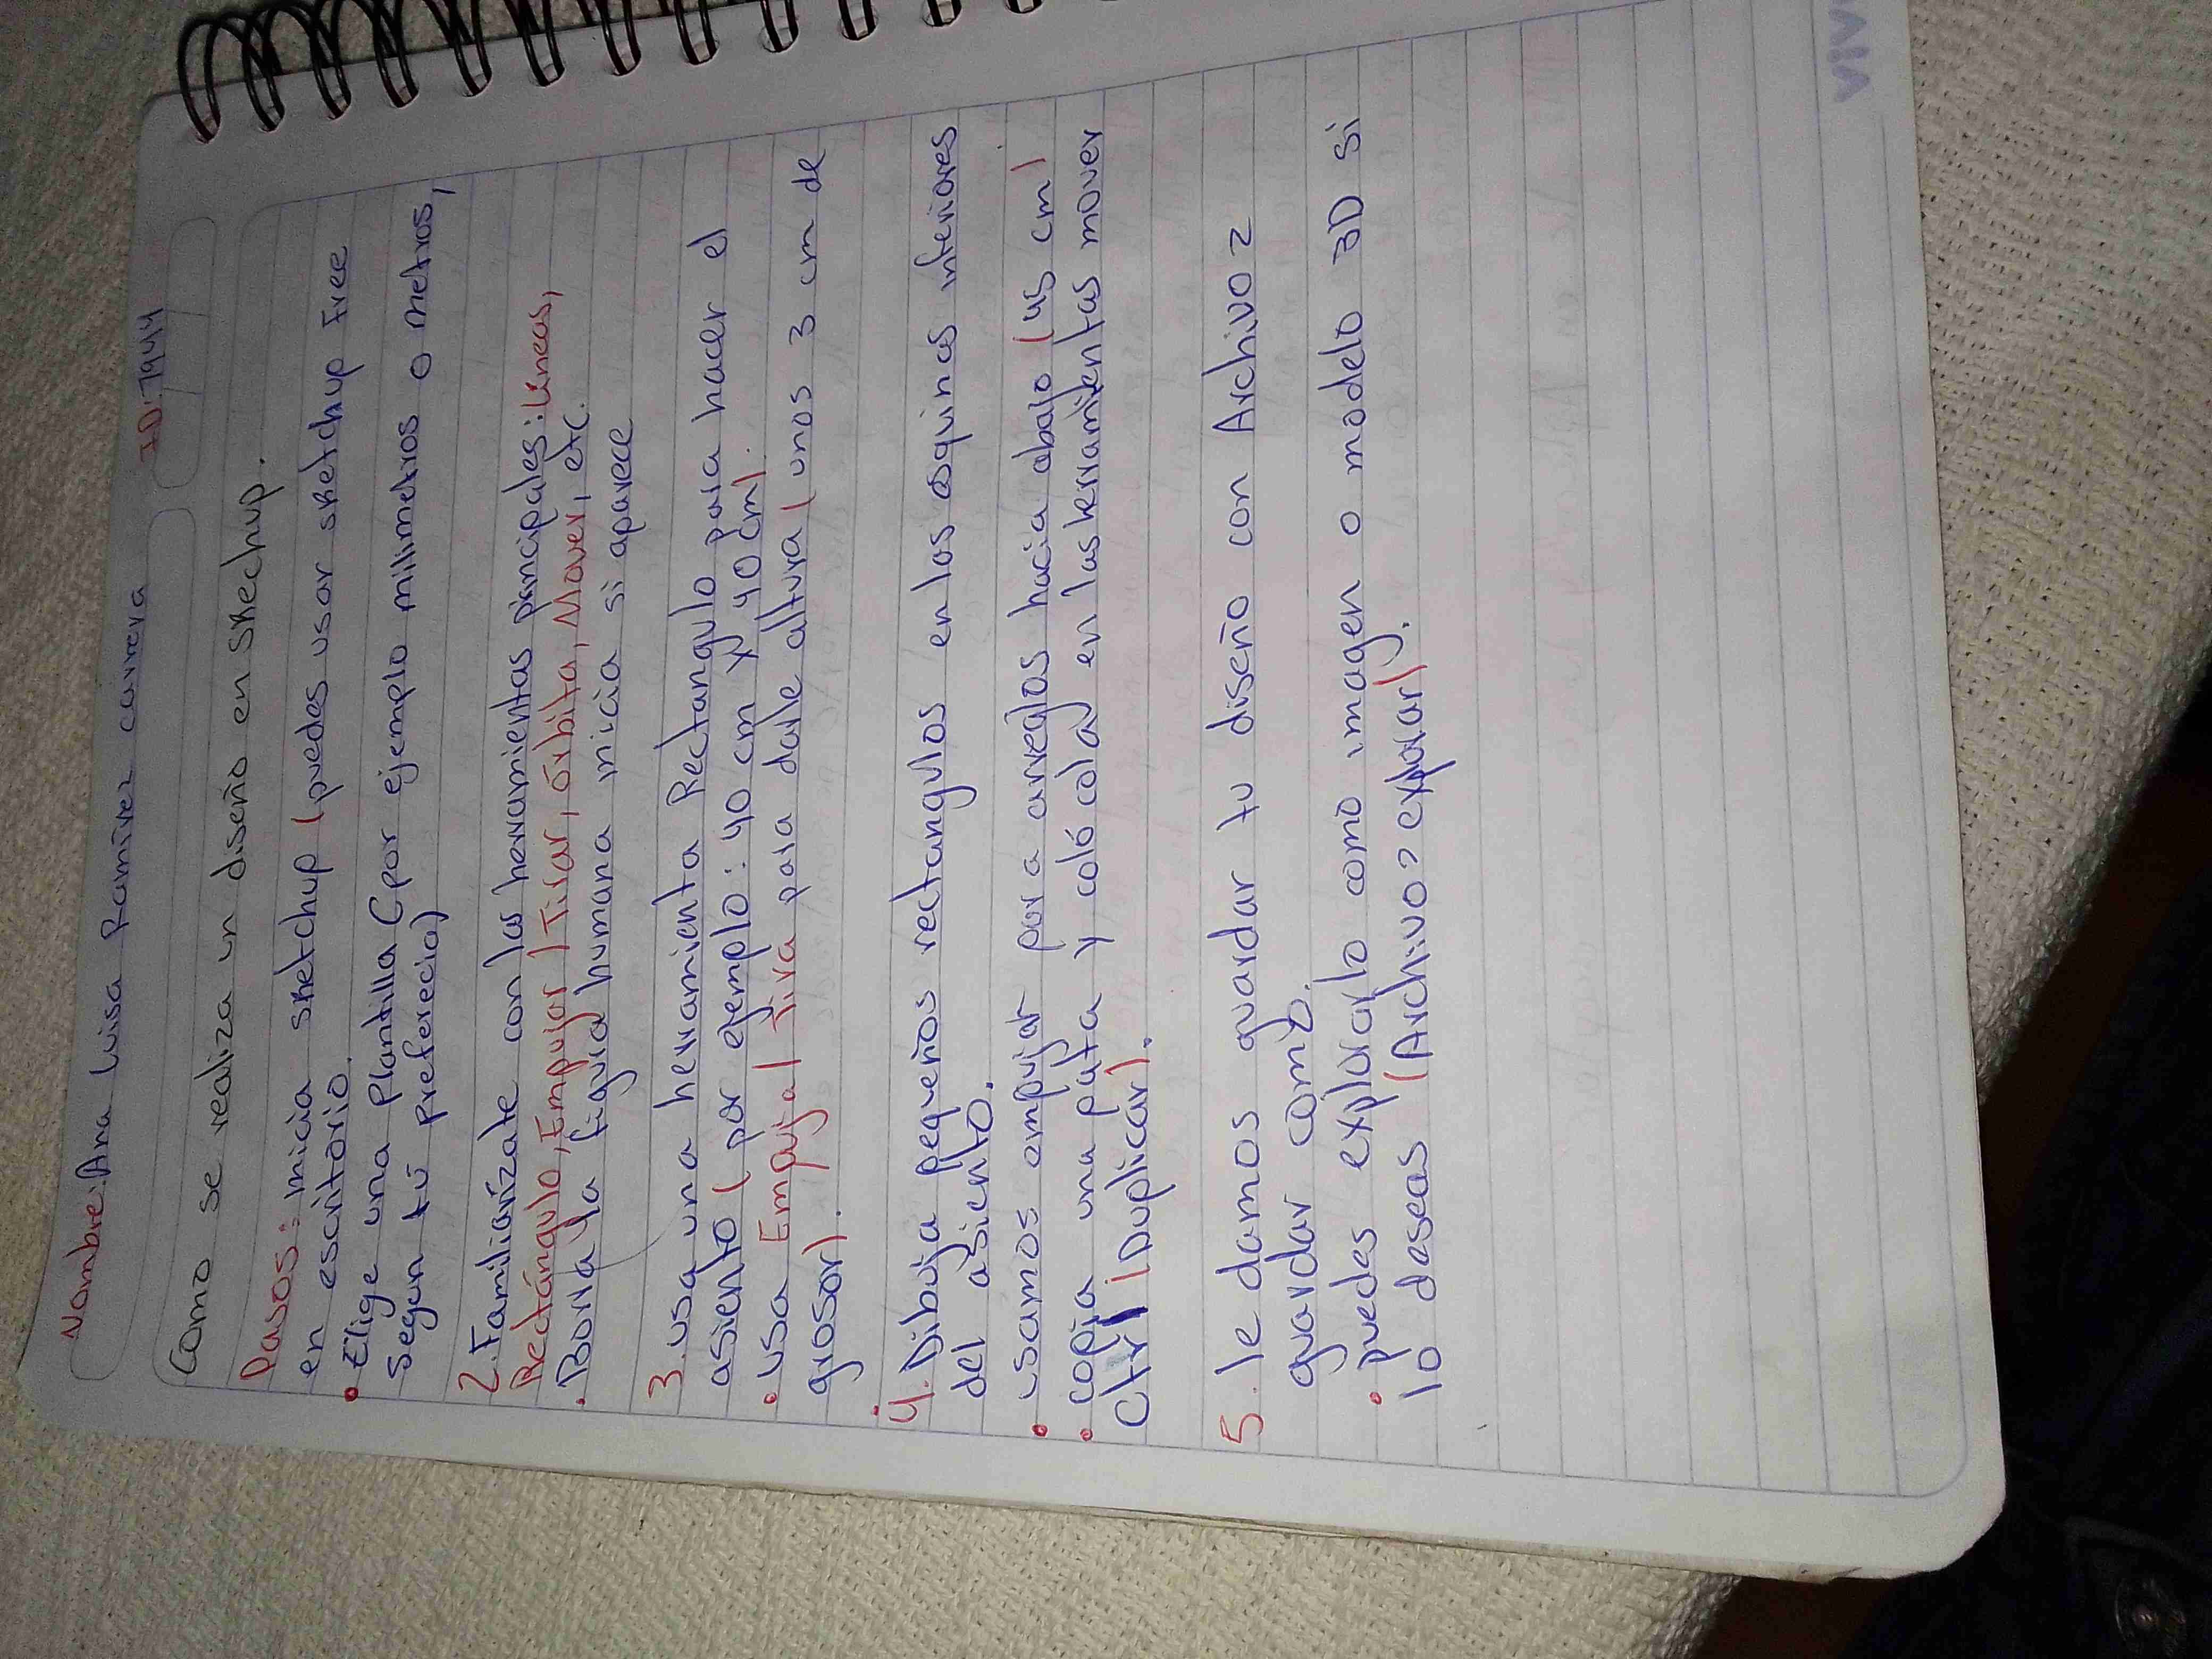 Nombre: Ana Luisa Ramírez carrera ID: 7944
Como se realiza un diseño en Skechup.
Pasos: inicia sketchup (puedes usar sketchup Free
en escritorio.
• Elige una plantilla (por ejemplo milimetros o metros,
segun tú preferecia)
2. Familiarízate con las herramientas principales: Lineas,
Rectángulo, Empujar / Tirar, órbita, Mover, etc.
• Borra la figura humana inicia si aparece
3. usa una herramienta Rectangulo para hacer el
asiento ( por ejemplo: 40 cm x 40 cm).
• usa Empuja / Tira para darle altura ( unos 3 cm de
grosor).
4. Dibuja pequeños rectangulos en las esquinas inferiores
del asiento.
• usamos empujar para arreglos hacia abajo (45 cm)
• copia una pata y coló cola en las herramientas mover
Ctrl (Duplicar).
5. le damos guardar tu diseño con Archivo >
guardar como.
• puedes explorarlo como imagen o modelo 3D si
lo deseas (Archivo > explorar).
VIVA